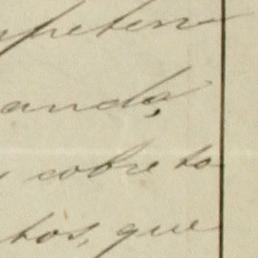 mpeten
anda,
, sobre to
tos, que